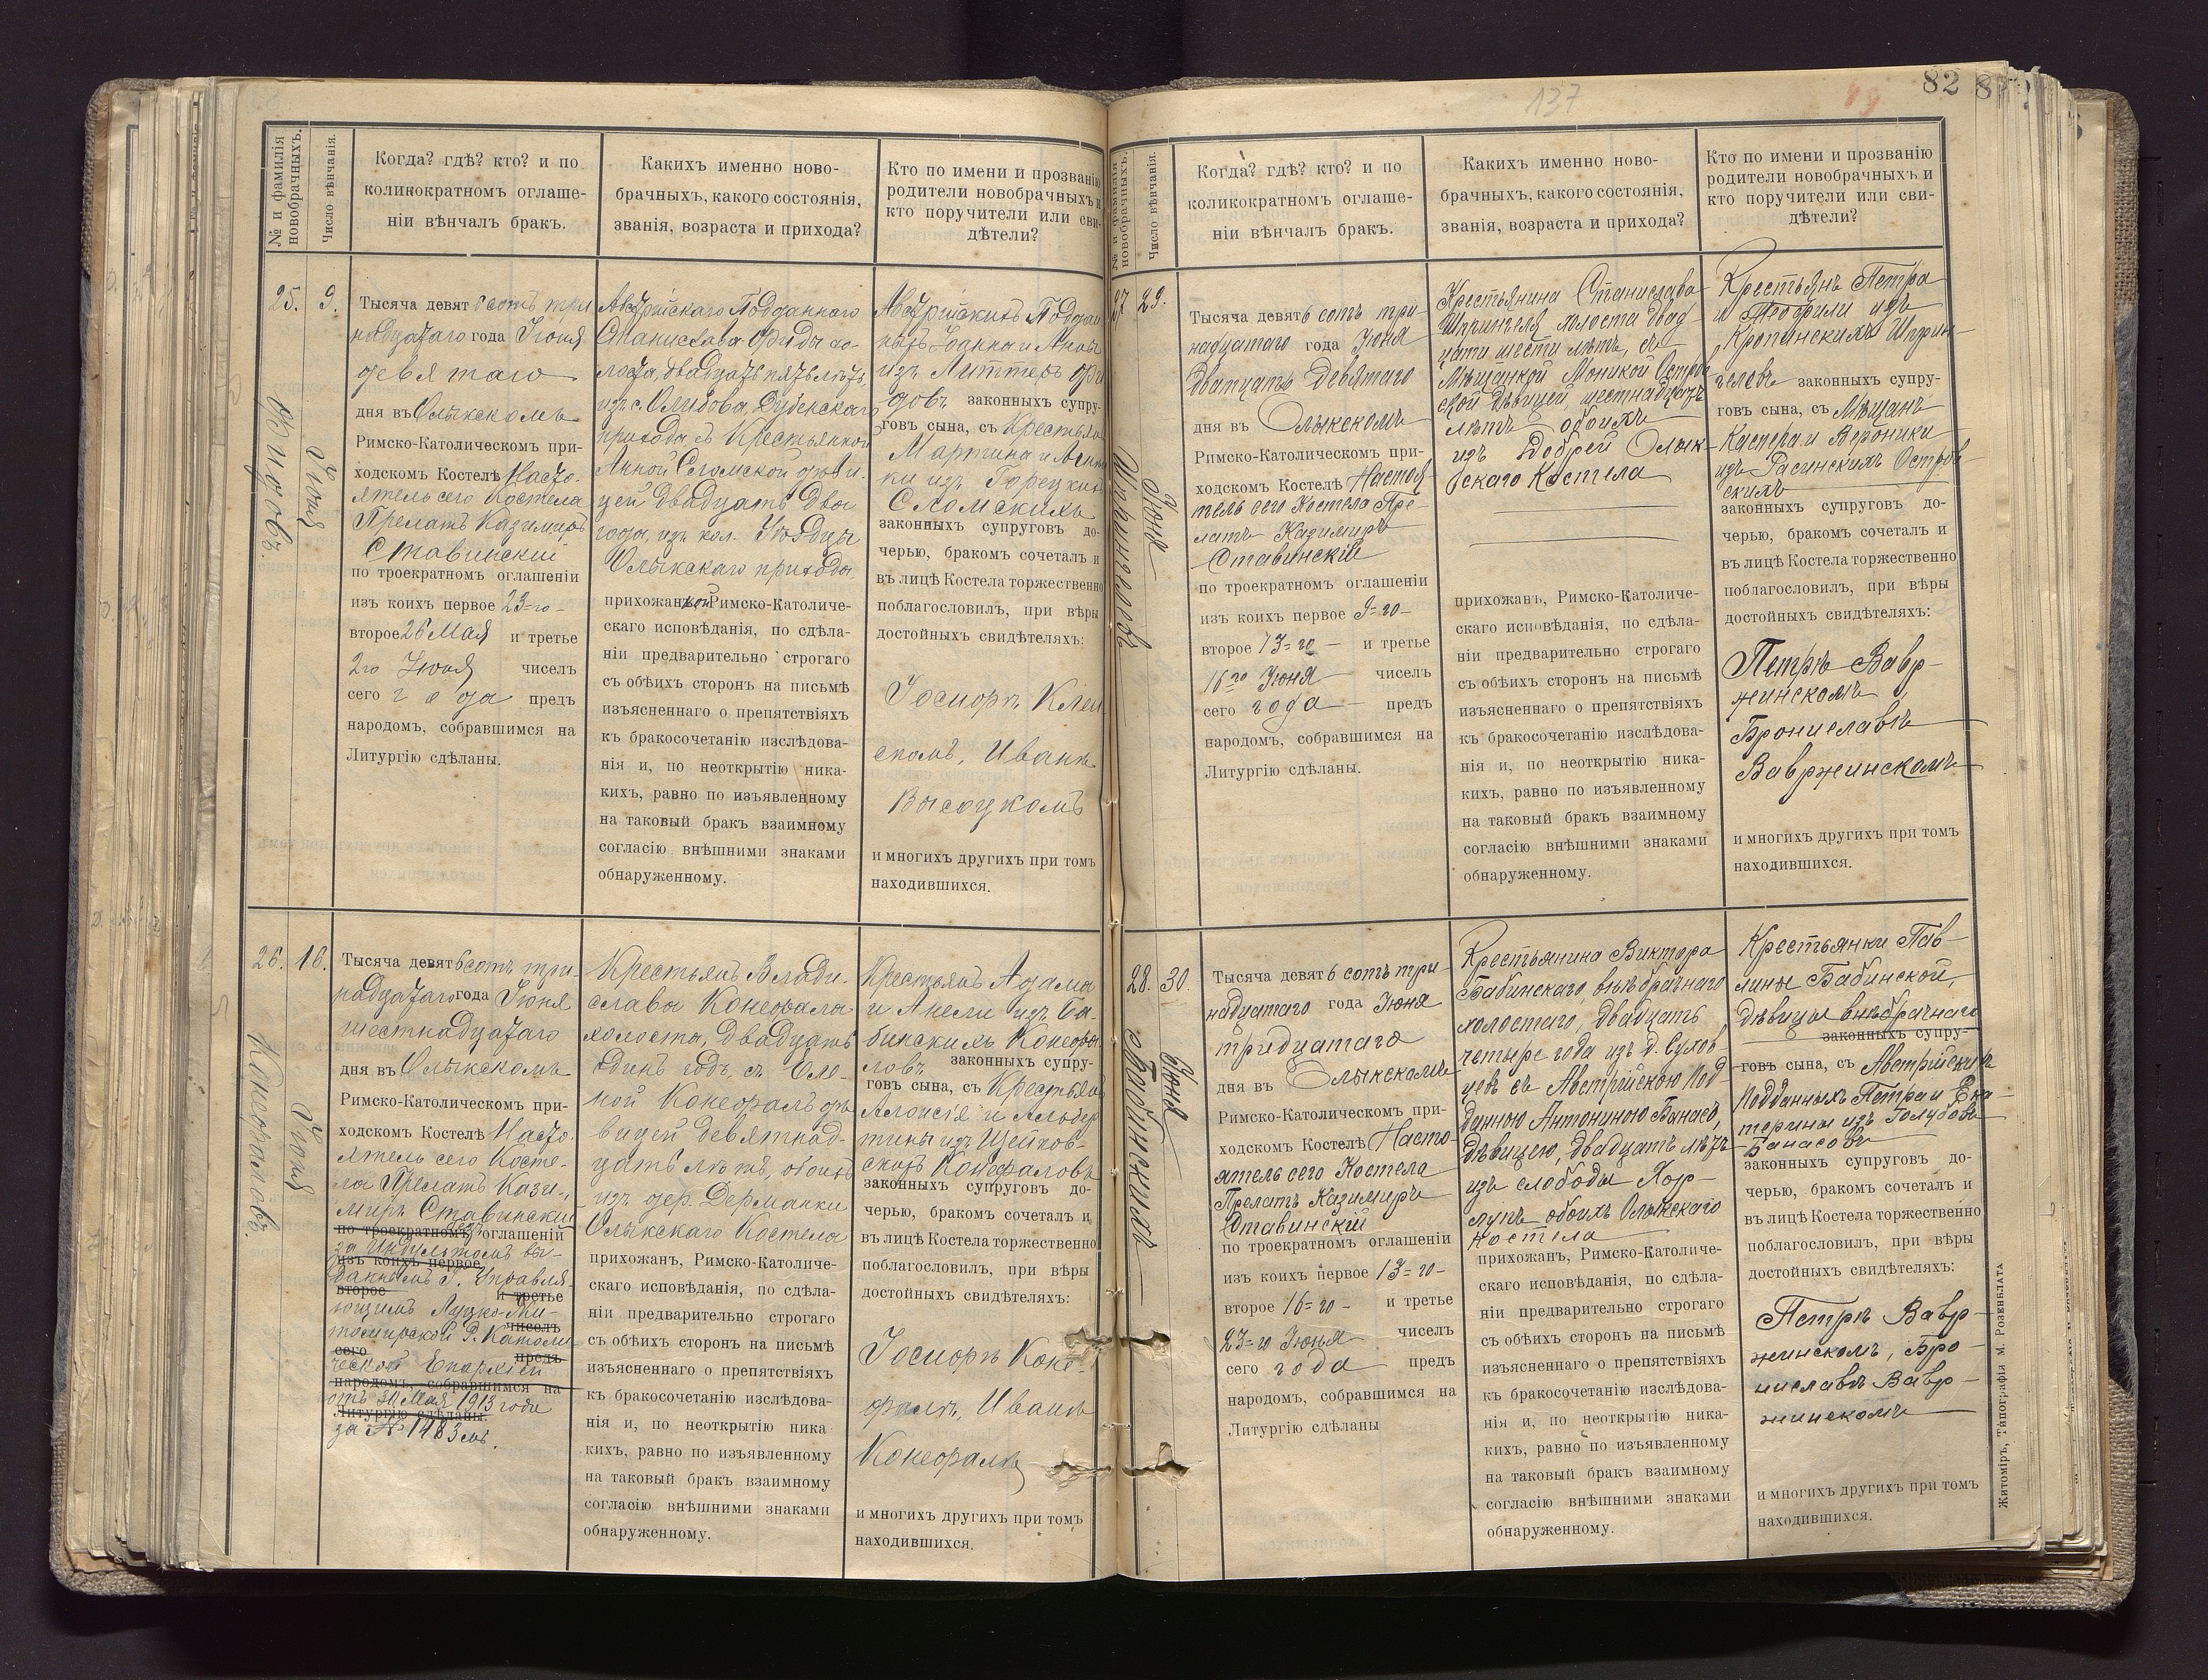 № и фамилія
новобрачныхъ.
Число вѣнчанія.
Когда? гдѣ? кто? и по
коликократномъ оглаше-
ніи вѣнчалъ бракъ.
Какихъ именно ново-
брачныхъ, какого состоянія,
званія, возраста и прихода?
Кто по имени и прозванію
родители новобрачныхъ и
кто поручители или сви-
дѣтели?
25.
Фидовъ.
9.
Іюня
Тысяча девятьсотъ три
надцатаго года Іюня
девятаго
дня въ Олыкскомъ
Римско-Католическом при-
ходскомъ Костелѣ Насто-
ятель сего Костела
Прелатъ Казимиръ
Ставинскій
по троекратном оглашеніи
изъ коихъ первое 23-го
второе 26 Мая и третье
2го Іюня чиселъ
сего года предъ
народомъ, собравшимся на
Литургію сдѣланы.
Австрійскаго Подданнаго
Станислава Фиды хо-
лоста, двадцать пять лѣтъ,
изъ с. Олибова, Дубенскаго
прихода, съ Крестьянкой
Анной Сломской дѣви-
цей двадцать два
года, изъ кол. Уѣздцы
Олыкскаго прихода
прихожан Римско-Католиче-
скаго исповѣданія, по сдѣла-
ніи предварительно строгаго
съ обѣихъ сторонъ на письмѣ
изъясненнаго о препятствіяхъ
къ бракосочетанію изслѣдова-
нія и, по неоткрытію ника-
кихъ, равно по изъявленному
на таковый бракъ взаимному
согласію внѣшними знаками
обнаруженному.
Австрійскихъ Поддан
ныхъ Іоанна и Анны
изъ Литтеръ Фи
довъ законныхъ супру-
говъ сына, съ Крестьян
Мартина и Агнѣ
ки изъ Горецкихъ
Сломскихъ
законныхъ супруговъ до-
черью, бракомъ сочеталъ и
въ лицѣ Костела торжественно
поблагословилъ, при вѣры
достойныхъ свидѣтеляхъ:
Іосифѣ
скомъ, Иванѣ
Высоцкомъ
и многихъ другихъ при томъ
находившихся.
26.
Конефаловъ.
16.
Іюня
Тысяча девятьсотъ три-
надцатаго года Іюня
шестнадцатаго
дня въ Олыкскомъ
Римско-Католическомъ при-
ходскомъ Костелѣ Насто-
ятель сего Косте-
ла Прелатъ Кази-
миръ Ставинскій
по троекратномъ безъ оглашеній
за Индультомъ вы-
изъ коихъ первое
даннымъ Г. Управля
второе и третье
ющимъ Луцко-Жи-
чиселъ
томирской Р. Католи
сего предъ
ческой Епархіей
народомъ, собравшимся на
отъ 30 Мая 1913 года
Литургію сдѣланы.
за № 1483мъ.
Крестьянъ Влади-
слава Конефала
холоста, двадцать
одинъ годъ, съ Еле-
ной Конефалъ дѣ
вицей девятнад-
цать лѣтъ, обоихъ
изъ дер. Дерманки
Олыкскаго Костела
прихожан, Римско-Католиче-
скаго исповѣданія, по сдѣла-
ніи предварительно строгаго
съ обѣихъ сторонъ на письмѣ
изъясненнаго о препятствіяхъ
къ бракосочетанію изслѣдова-
нія и, по неоткрытію ника
кихъ, равно по изъявленному
на таковый бракъ взаимному
согласію внѣшними знаками
обнаруженному.
Крестьянъ Адама
и Анели изъ Ба-
бинскихъ Конефа
ловъ законныхъ супру-
говъ сына, съ Крестьянъ
Алоисія и Альбер
тины изъ Цейков-
скихъ Конефаловъ
законныхъ супруговъ до-
черью, бракомъ сочеталъ и
въ лицѣ Костела торжественно
поблагословилъ, при вѣры
достойныхъ свидѣтеляхъ:
Іосифѣ Коне
фалѣ, Иванѣ
Конефалѣ
и многихъ другихъ при томъ
находившихся.
137
82
№ и фамилія
новобрачныхъ.
Число вѣнчанія.
Когда? гдѣ? кто? и по
коликократномъ оглаше-
ніи вѣнчалъ бракъ.
Какихъ именно ново-
брачныхъ, какого состоянія,
званія, возраста и прихода?
Кто по имени и прозванію
родители новобрачныхъ и
кто поручители или сви-
дѣтели?
27
Шпрингеловъ
29.
Іюня
Тысяча девятьсотъ три-
надцатаго года Іюня
двадцать девятаго
дня въ Олыкскомъ
Римско-Католическом при-
ходскомъ Костелѣ Настоя-
тель сего Костела Пре-
латъ Казимиръ
Ставинскій
по троекратном оглашеніи
изъ коихъ первое 9-го
второе 13-го и третье
16го Іюня чиселъ
сего года предъ
народомъ, собравшимся на
Литургію сдѣланы.
Крестьянина Станислава
Шпрингеля холоста двад
цати шести лѣтъ, съ
Мѣщанкой Моникой Остров
ской дѣвицей, шестнадцать
лѣтъ обоихъ
изъ Добрей Олык-
скаго Костела
прихожанъ, Римско-Католиче-
скаго исповѣданія, по сдѣла-
ніи предварительно строгаго
съ обѣихъ сторонъ на письмѣ
изъясненнаго о препятствіяхъ
къ бракосочетанію изслѣдова-
нія и, по неоткрытію ника-
кихъ, равно по изъявленному
на таковый бракъ взаимному
согласію внѣшними знаками
обнаруженному.
Крестьянъ Петра
и Теофили изъ
Кропанскихъ Шприн-
геловъ законныхъ супру-
говъ сына, съ Мѣщанъ
Каспера и Вероники
изъ Расинскихъ Остров-
скихъ
законныхъ супруговъ до-
черью, браком сочеталъ и
въ лицѣ Костела торжественно
поблагословил, при вѣры
достойных свидѣтелях:
Петрѣ Вавр-
жинскомъ
Брониславѣ
Вавржинскомъ
и многихъ других при том
находившихся.
28.
Бабинскихъ
30.
Іюня
Тысяча девятьсотъ три-
надцатаго года Іюня
тридцатаго
дня въ Олыкскомъ
Римско-Католическомъ при-
ходскомъ Костелѣ Насто-
ятель сего Костела
Прелатъ Казимиръ
Ставинскій
по троекратном оглашеніи
изъ коихъ первое 13-го
второе 16-го и третье
23-го Іюня чиселъ
сего года предъ
народомъ, собравшимся на
Литургію сдѣланы
Крестьянина Виктора
Бабинскаго, внѣбрачнаго
холостаго, двадцать
четыре года изъ д. Сухов
цевъ съ Австрійскою Под-
данною Антониною Банасъ,
дѣвицею, двадцать лѣтъ
изъ слободы Хор-
лупъ обоихъ Олыкскаго
Костела
прихожан, Римско-Католиче-
скаго исповѣданія, по сдѣла-
ніи предварительно строгаго
съ обѣихъ сторонъ на письмѣ
изъясненнаго о препятствіяхъ
къ бракосочетанію изслѣдова-
нія и, по неоткрытію ника-
кихъ, равно по изъявленному
на таковый бракъ взаимному
согласію внѣшними знаками
обнаруженному.
Крестьянки Пав-
лины Бабинской,
дѣвицы внѣбрачнаго
законныхъ супру-
говъ сына, съ Австрійскихъ
Подданныхъ Петра и Ека-
терины изъ Голубовъ
Банасовъ
законныхъ супруговъ до-
черью, бракомъ сочеталъ и
въ лицѣ Костела торжественно
поблагословилъ, при вѣры
достойныхъ свидѣтеляхъ:
Петрѣ Вавр-
жинскомъ, Бро-
ниславѣ Вавр-
жинскомъ
и многихъ другихъ при томъ
находившихся.
Житоміръ, Типографія М. Розенблата